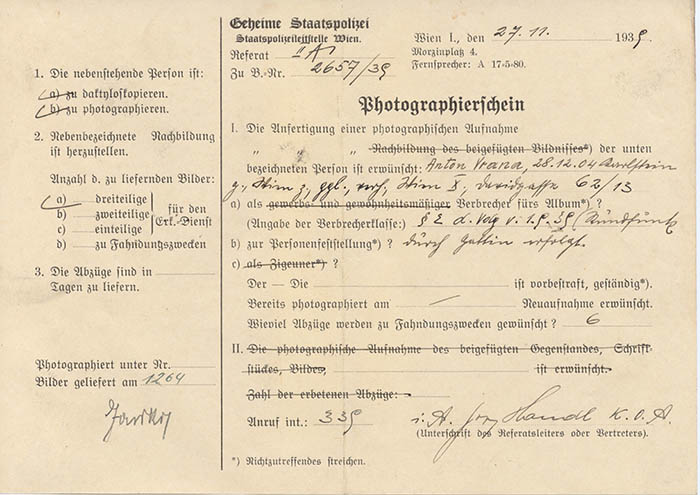 Geheime Staatspolizei
Staatspolizeileitstelle Wien.
Referat II A
Zu B.-Nr. 2657/39
Wien I., den 27. 11. 1939.
Morzinplatz 4.
Fernsprecher: A 17-5-80.
1. Die nebenstehende Person ist:
a) zu daktyloskopieren.
b) zu photographieren.
2. Nebenbezeichnete Nachbildung
ist herzustellen.
Anzahl d. zu liefernden Bilder:
a) dreiteilige
b) zweiteilige
c) einteilige
für den
Erk.-Dienst
d) zu Fahndungszwecken
3. Die Abzüge sind in
Tagen zu liefern.
Photographiert unter Nr.
Bilder geliefert am 1264
Photographierschein
I. Die Anfertigung einer photographischen Aufnahme
„ „ „ Nachbildung des beigefügten Bildnisses*) der unten
bezeichneten Person ist erwünscht: Anton Vrana, 28.12.04
Wien X., Davidgasse 62/13
a) als gewerbs- und gewohnheitsmäßiger Verbrecher fürs Album*) ?
(Angabe der Verbrecherklasse:) § 2 d. v. 1.9.39 (Rundfunk
b) zur Personenfeststellung*) ? durch Gattin erfolgt.
c) als Zigeuner*) ?
Der – Die ist vorbestraft, geständig*).
Bereits photographiert am — Neuaufnahme erwünscht.
Wieviel Abzüge werden zu Fahndungszwecken gewünscht ? 6
II. Die photographische Aufnahme des beigefügten Gegenstandes, Schrift-
stückes, Bildes, ist erwünscht.
Zahl der erbetenen Abzüge:
Anruf int.: 339
i. A. Handl K.O.A.
(Unterschrift des Referatsleiters oder Vertreters).
*) Nichtzutreffendes streichen.